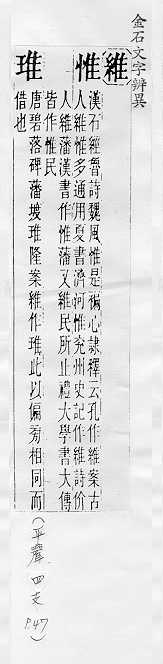 金石文字辨異
維
漢石經魯詩魏風惟是褊心隸釋云孔作維案古
惟
人維惟多通用夏書濟河惟兗州史記作維詩价
人維藩漢書作惟藩又維民所止禮大學書大傳
皆作惟民
琟
唐碧落碑藩坡琟隆案維作琟此以偏旁相同而
借也
(平聲 四支 P.47)